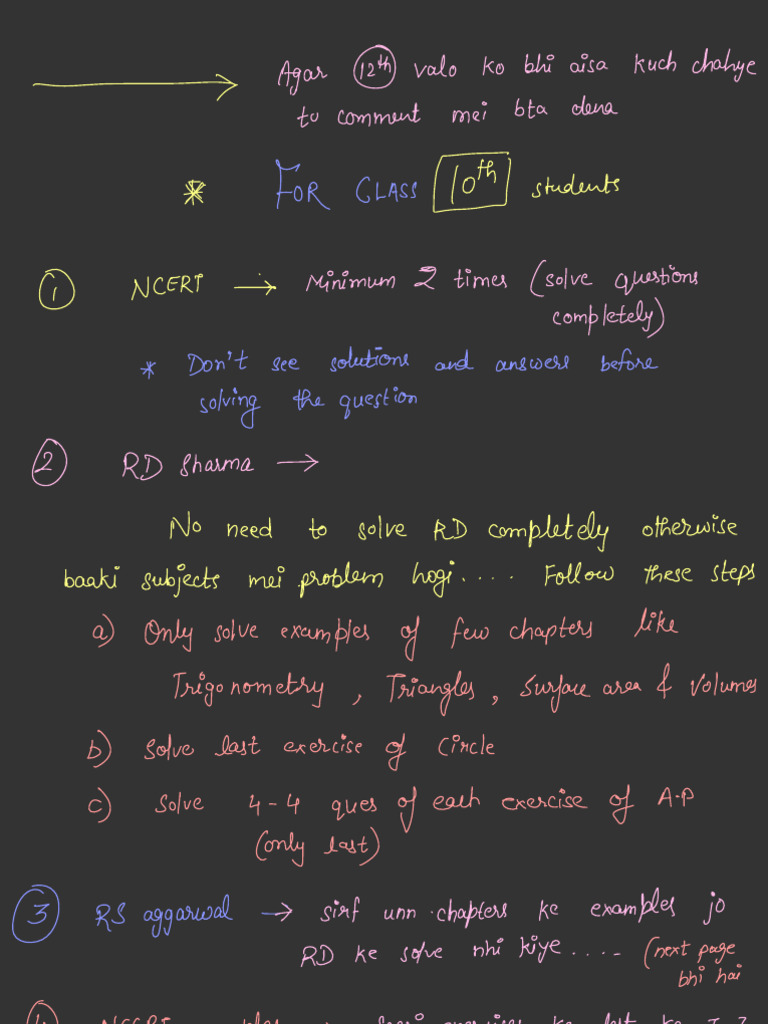 Agar 12th valo ko bhi aisa kuch chahye
to comment mei bta dena
* FOR CLASS 10th students
1 NCERT → Minimum 2 times (solve questions
completely)
* Don't see solutions and answers before
solving the question
2 RD Sharma →
No need to solve RD completely otherwise
baaki subjects mei problem hogi.... Follow these steps
a) Only solve examples of few chapters like
Trigonometry, Triangles, Surface area & Volumes
b) Solve last exercise of Circle
c) Solve 4-4 ques of each exercise of A.P
(only last)
3 RS aggarwal → sirf unn chapters ke examples jo
RD ke solve nhi kiye..... (next page
bhi hai
4 NCERT